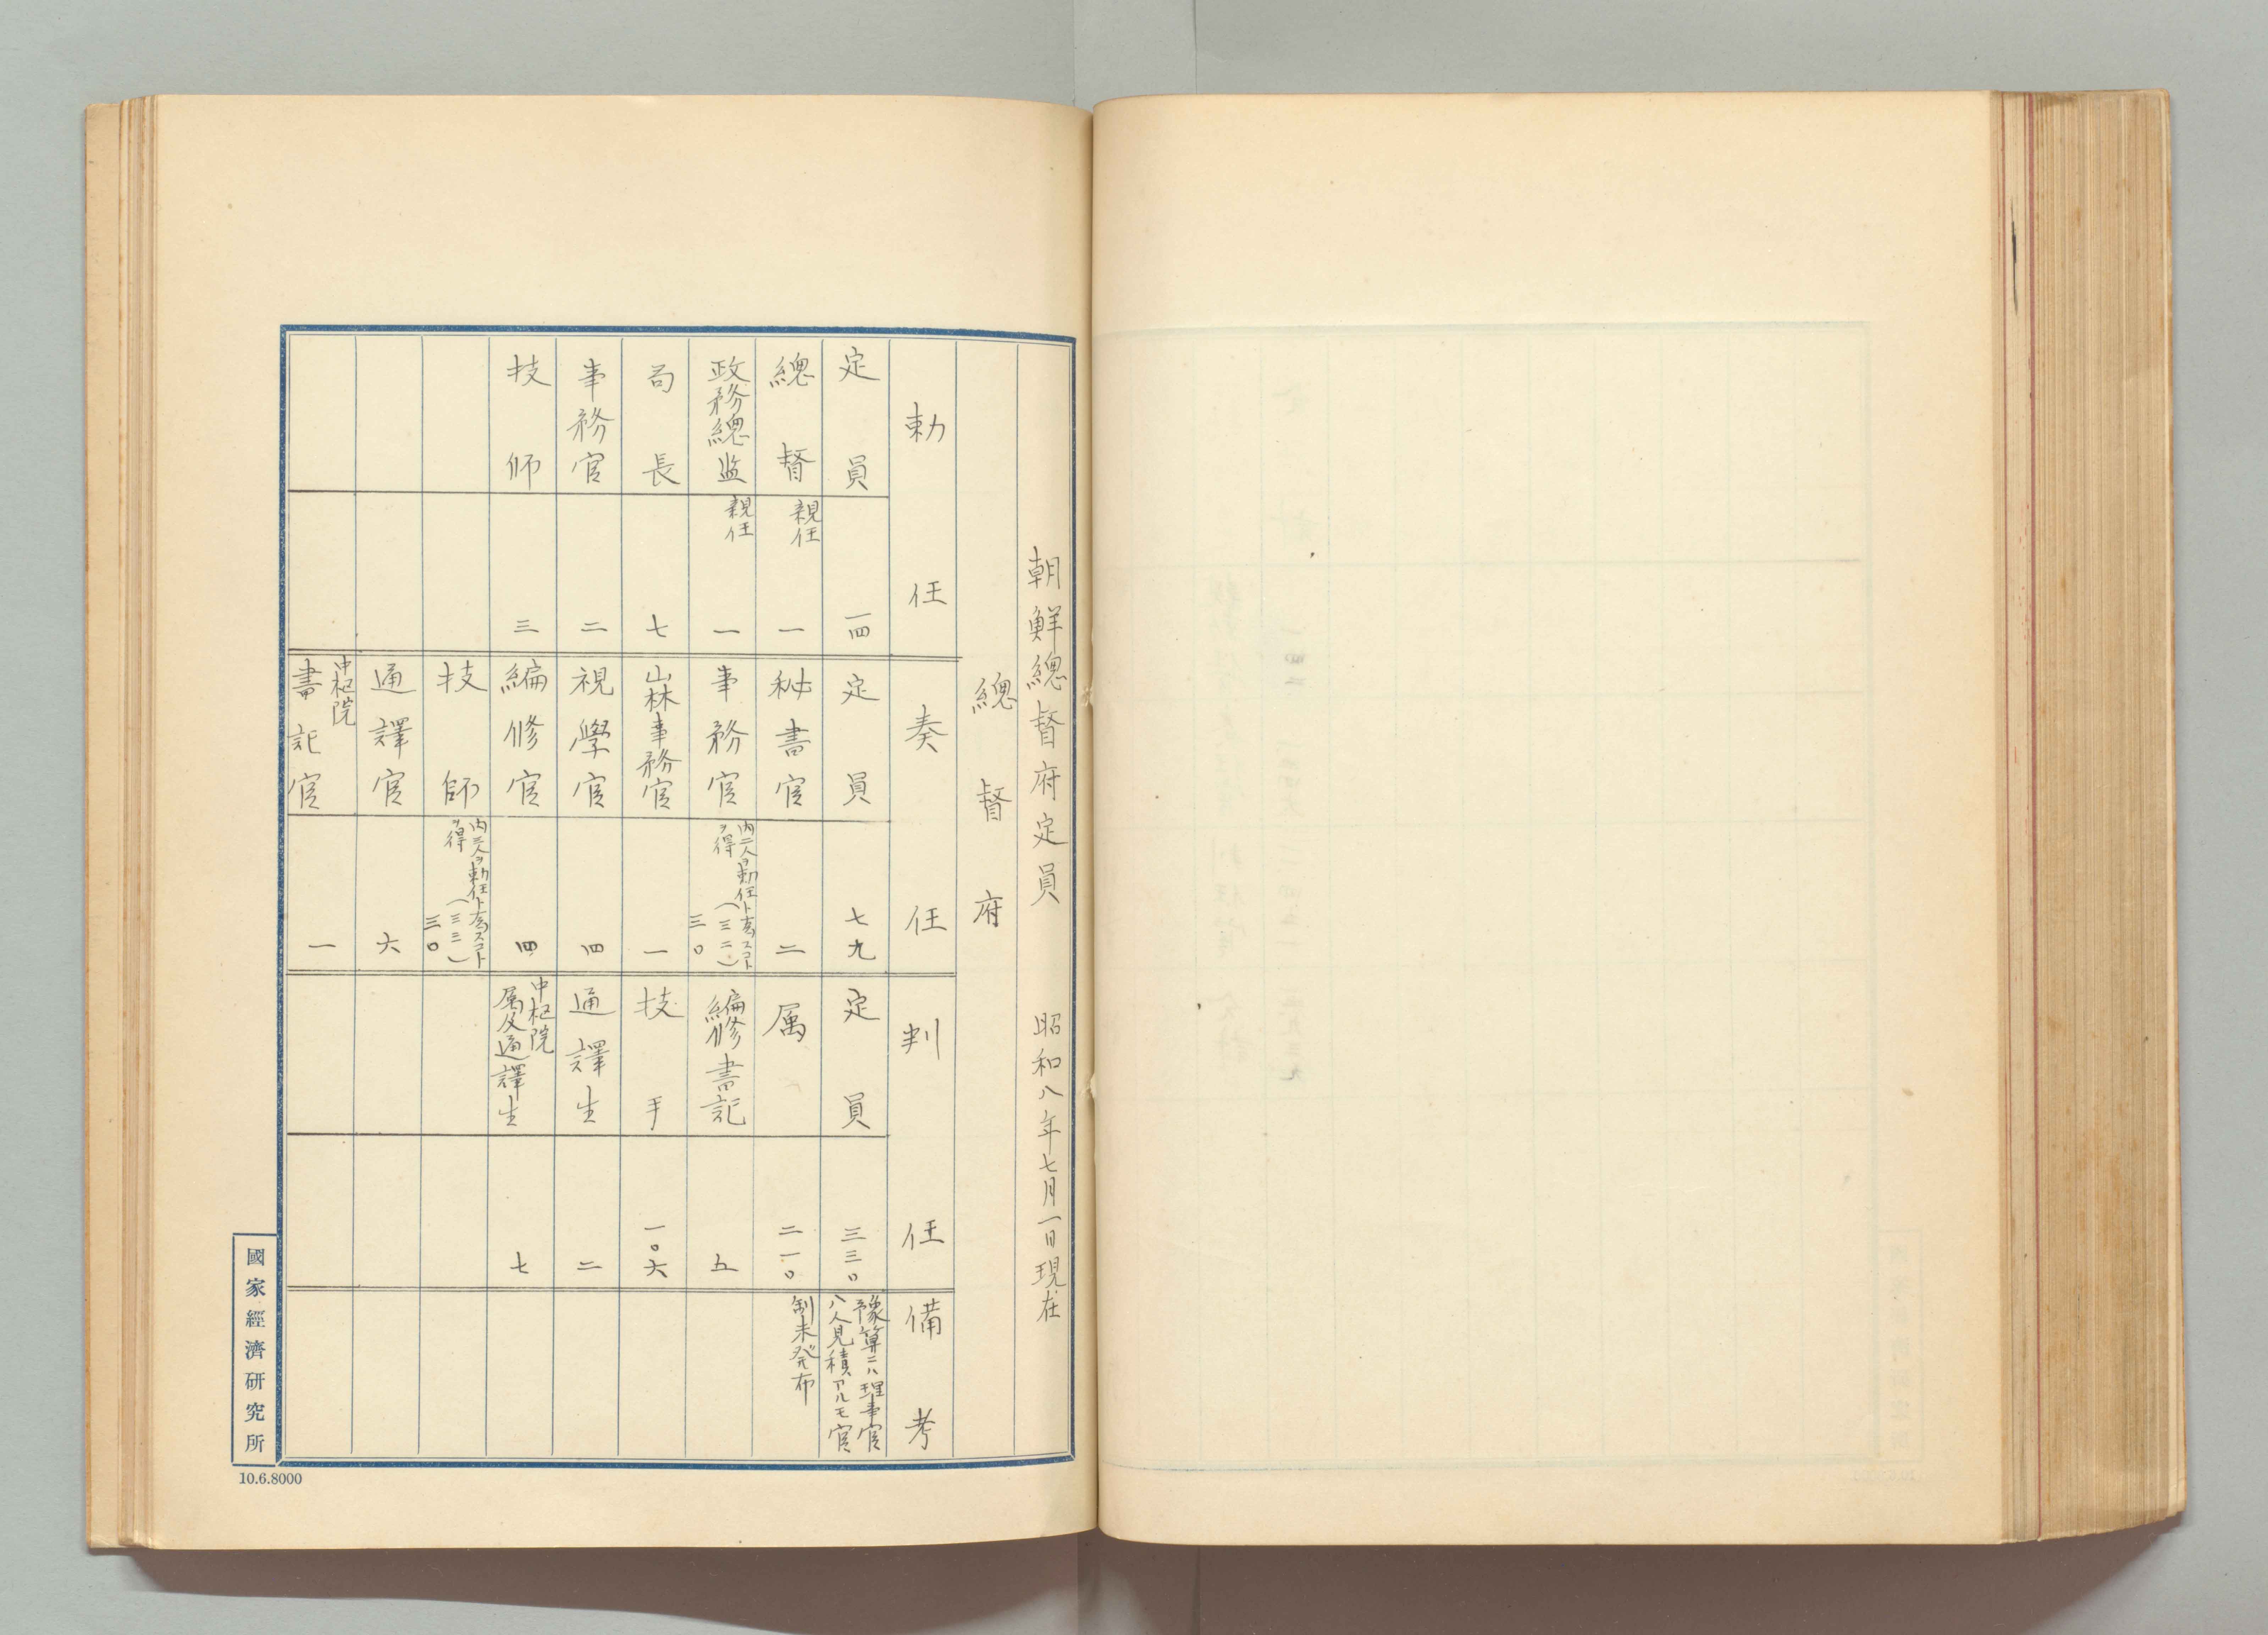 朝鮮總督府定員 昭和八年七月一日現在
總督府
勅任 奏任 判任 備考
定員 一四 定員 七九 定員 三三〇 豫算ニハ理事官
八人見積アルモ官
總督 親任 一 秘書官 二 属 二一〇 制未発布
政務總監 親任 一 事務官 内二人ヲ勅任ト為スコト
ヲ得 (三二) 三〇 編修書記 五
局長 七 山林事務官 一 技手 一〇六
事務官 二 視學官 四 通譯生 二
技師 三 編修官 四 中枢院
属及通譯生 七
技師 内三人ヲ勅任ト為スコト
ヲ得 (三三) 三〇
通譯官 六
中枢院
書記官 一
國家經濟研究所
10.6.8000